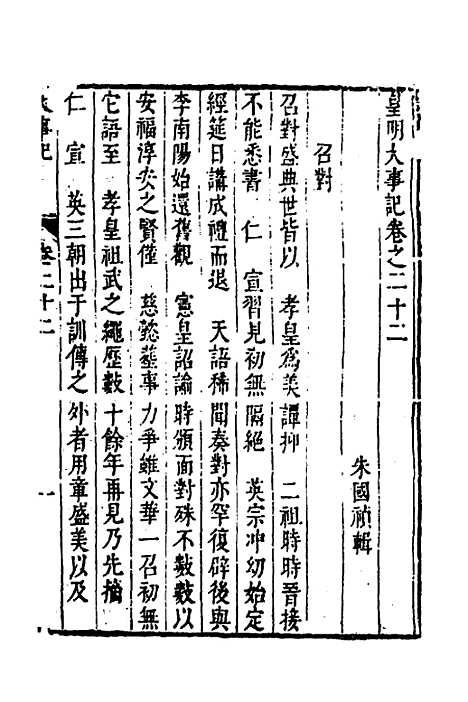 皇明大事記卷之二十二
朱國禎輯
召對
召對盛典世皆以　孝皇爲美譚抑　二祖時時晉接
不能悉書　仁　宣習見初無隔絕　英宗冲幼始定
經筵日講成禮而退　天語稀聞奏對亦罕復辟後與
李南陽始還舊觀　憲皇詔諭時頒面對殊不數數以
安福淳安之賢僅　慈懿塟事力爭雖文華一召初無
它語至　孝皇祖武之繩歷數十餘年再見乃先摘
仁　宣　英三朝出于訓傳之外者用章盛美以及
大事記　卷二十二　一